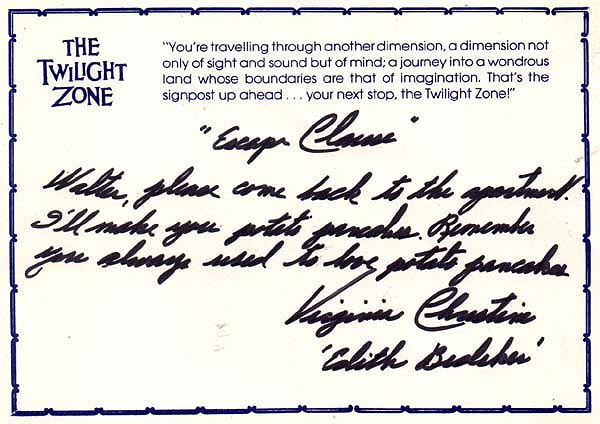 THE
TWILIGHT
ZONE
"You're travelling through another dimension, a dimension not
only of sight and sound but of mind; a journey into a wondrous
land whose boundaries are that of imagination. That's the
signpost up ahead . . . your next stop, the Twilight Zone!"
"Escape Clause"
Walter, please come back to the apartment.
I'll make you potato pancakes. Remember
you always used to love potato pancakes
Virginia Christine
'Edith Bedeker'